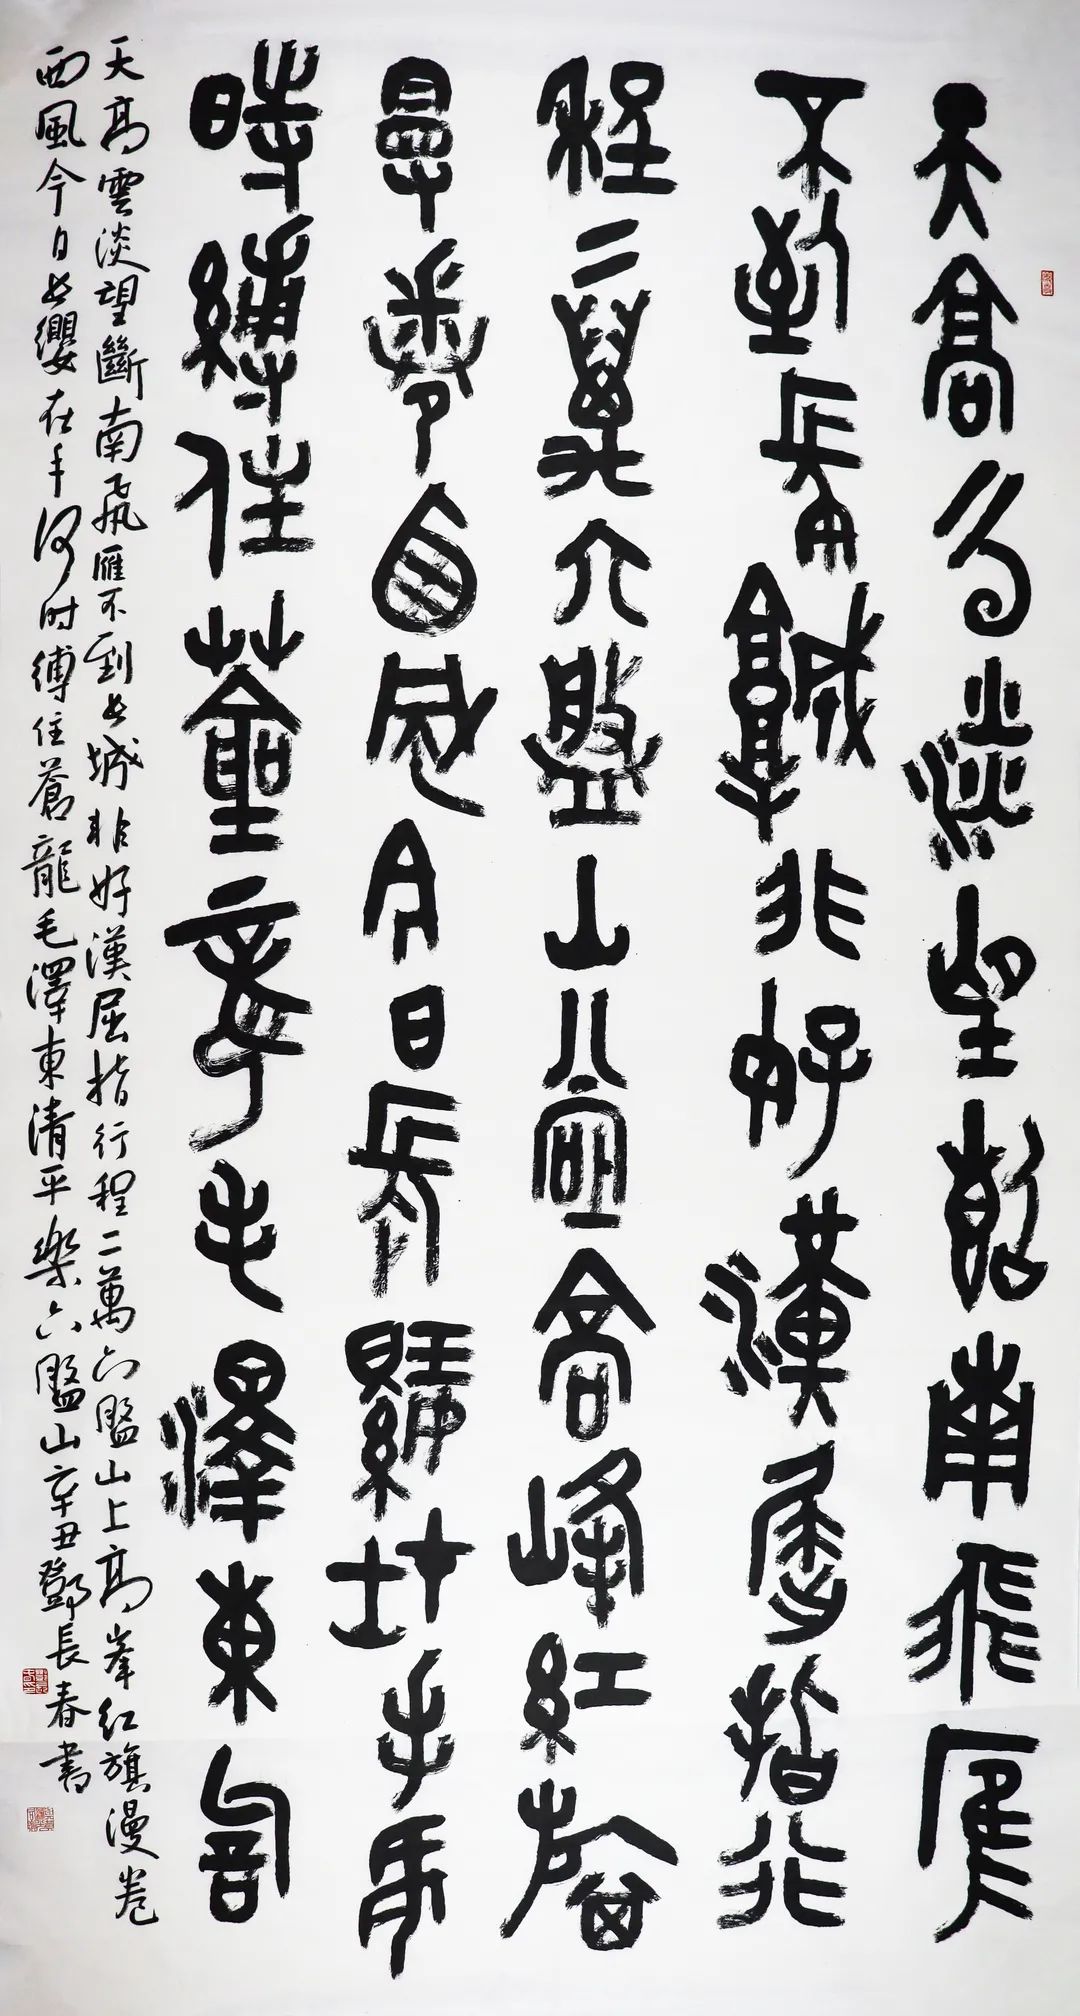 天高云淡望斷南飛雁
不到長城非好漢屈指行
程二萬六盤山上高峰紅旗
曼卷西風今日長纓在手何
時縛住蒼龍毛澤東詞
天高雲淡望斷南飛雁不到長城非好漢屈指行程二萬六盤山上高峯紅旗漫卷
西風今日長纓在手何时縛住蒼龍毛澤東清平樂六盤山辛丑鄧長春書